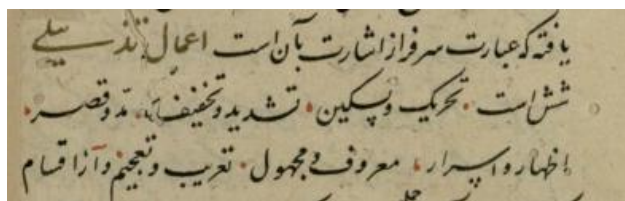 یافته که عبارت سرفراز اشارت بآن است اعمال تذییلی
شش است تحریک و تسکین تشدید و تخفیف مد و قصر
اظهار و اسرار معروف و مجهول تعریب و تعجیم و آز اقسام